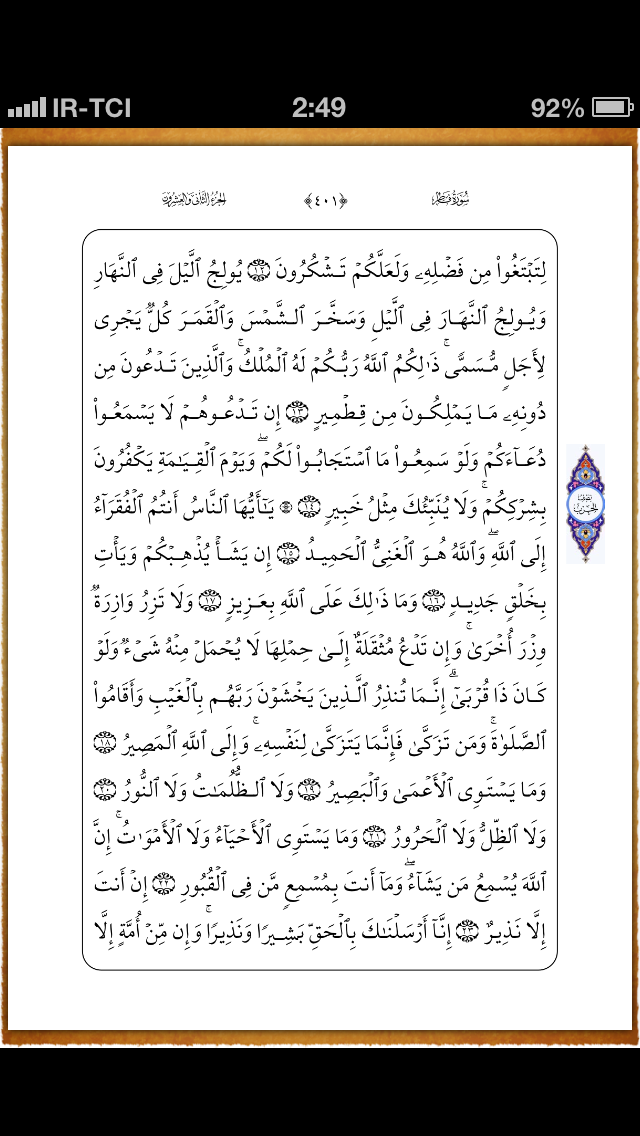 IR-TCI 2:49 92%
سُورَةُ فَاطِرٍ ﴿٤٠١﴾ الجُزْءُ الثَّانِي وَالعِشْرُونَ
لِتَبْتَغُوا۟ مِن فَضْلِهِۦ وَلَعَلَّكُمْ تَشْكُرُونَ ١٢ يُولِجُ ٱلَّيْلَ فِى ٱلنَّهَارِ
وَيُولِجُ ٱلنَّهَارَ فِى ٱلَّيْلِ وَسَخَّرَ ٱلشَّمْسَ وَٱلْقَمَرَ كُلٌّ يَجْرِى
لِأَجَلٍ مُّسَمًّى ۚ ذَٰلِكُمُ ٱللَّهُ رَبُّكُمْ لَهُ ٱلْمُلْكُ ۚ وَٱلَّذِينَ تَدْعُونَ مِن
دُونِهِۦ مَا يَمْلِكُونَ مِن قِطْمِيرٍ ١٣ إِن تَدْعُوهُمْ لَا يَسْمَعُوا۟
دُعَآءَكُمْ وَلَوْ سَمِعُوا۟ مَا ٱسْتَجَابُوا۟ لَكُمْ ۖ وَيَوْمَ ٱلْقِيَٰمَةِ يَكْفُرُونَ
بِشِرْكِكُمْ ۚ وَلَا يُنَبِّئُكَ مِثْلُ خَبِيرٍ ١٤ ۞ يَٰٓأَيُّهَا ٱلنَّاسُ أَنتُمُ ٱلْفُقَرَآءُ
إِلَى ٱللَّهِ ۖ وَٱللَّهُ هُوَ ٱلْغَنِىُّ ٱلْحَمِيدُ ١٥ إِن يَشَأْ يُذْهِبْكُمْ وَيَأْتِ
بِخَلْقٍ جَدِيدٍ ١٦ وَمَا ذَٰلِكَ عَلَى ٱللَّهِ بِعَزِيزٍ ١٧ وَلَا تَزِرُ وَازِرَةٌ
وِزْرَ أُخْرَىٰ ۚ وَإِن تَدْعُ مُثْقَلَةٌ إِلَىٰ حِمْلِهَا لَا يُحْمَلْ مِنْهُ شَىْءٌ وَلَوْ
كَانَ ذَا قُرْبَىٰٓ ۗ إِنَّمَا تُنذِرُ ٱلَّذِينَ يَخْشَوْنَ رَبَّهُم بِٱلْغَيْبِ وَأَقَامُوا۟
ٱلصَّلَوٰةَ ۚ وَمَن تَزَكَّىٰ فَإِنَّمَا يَتَزَكَّىٰ لِنَفْسِهِۦ ۚ وَإِلَى ٱللَّهِ ٱلْمَصِيرُ ١٨
وَمَا يَسْتَوِى ٱلْأَعْمَىٰ وَٱلْبَصِيرُ ١٩ وَلَا ٱلظُّلُمَٰتُ وَلَا ٱلنُّورُ ٢٠
وَلَا ٱلظِّلُّ وَلَا ٱلْحَرُورُ ٢١ وَمَا يَسْتَوِى ٱلْأَحْيَآءُ وَلَا ٱلْأَمْوَٰتُ ۚ إِنَّ
ٱللَّهَ يُسْمِعُ مَن يَشَآءُ ۖ وَمَآ أَنتَ بِمُسْمِعٍ مَّن فِى ٱلْقُبُورِ ٢٢ إِنْ أَنتَ
إِلَّا نَذِيرٌ ٢٣ إِنَّآ أَرْسَلْنَٰكَ بِٱلْحَقِّ بَشِيرًا وَنَذِيرًا ۚ وَإِن مِّنْ أُمَّةٍ إِلَّا